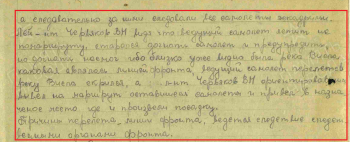 а следовательно за ними следовали все самолеты эскадрильи.
Л-нт Червяков ВН видя что ведущий самолет летит не
по маршруту, старался догнать самолет и предупредить,
но догнать не смог ибо близко уже видна была река Висла,
каковая являлась линией фронта, ведущий самолет перелетел
реку Висла скрылся, а л-нт Червяков ВН ориентировался
вышел на маршрут оставшиеся самолеты и привел в назна-
ченое место где и произвели посадку.
Причины перелета, линии фронта, ведется следствие следст-
венными органами фронта.